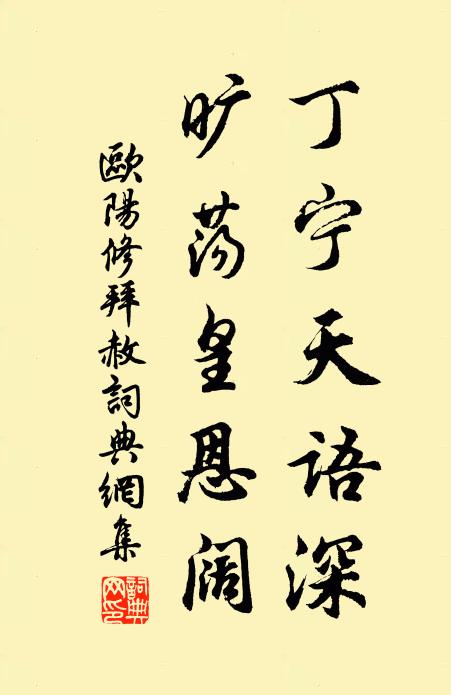 丁宁天语深
旷荡皇恩阔
歐陽修拜赦詞典網集
詞典网印